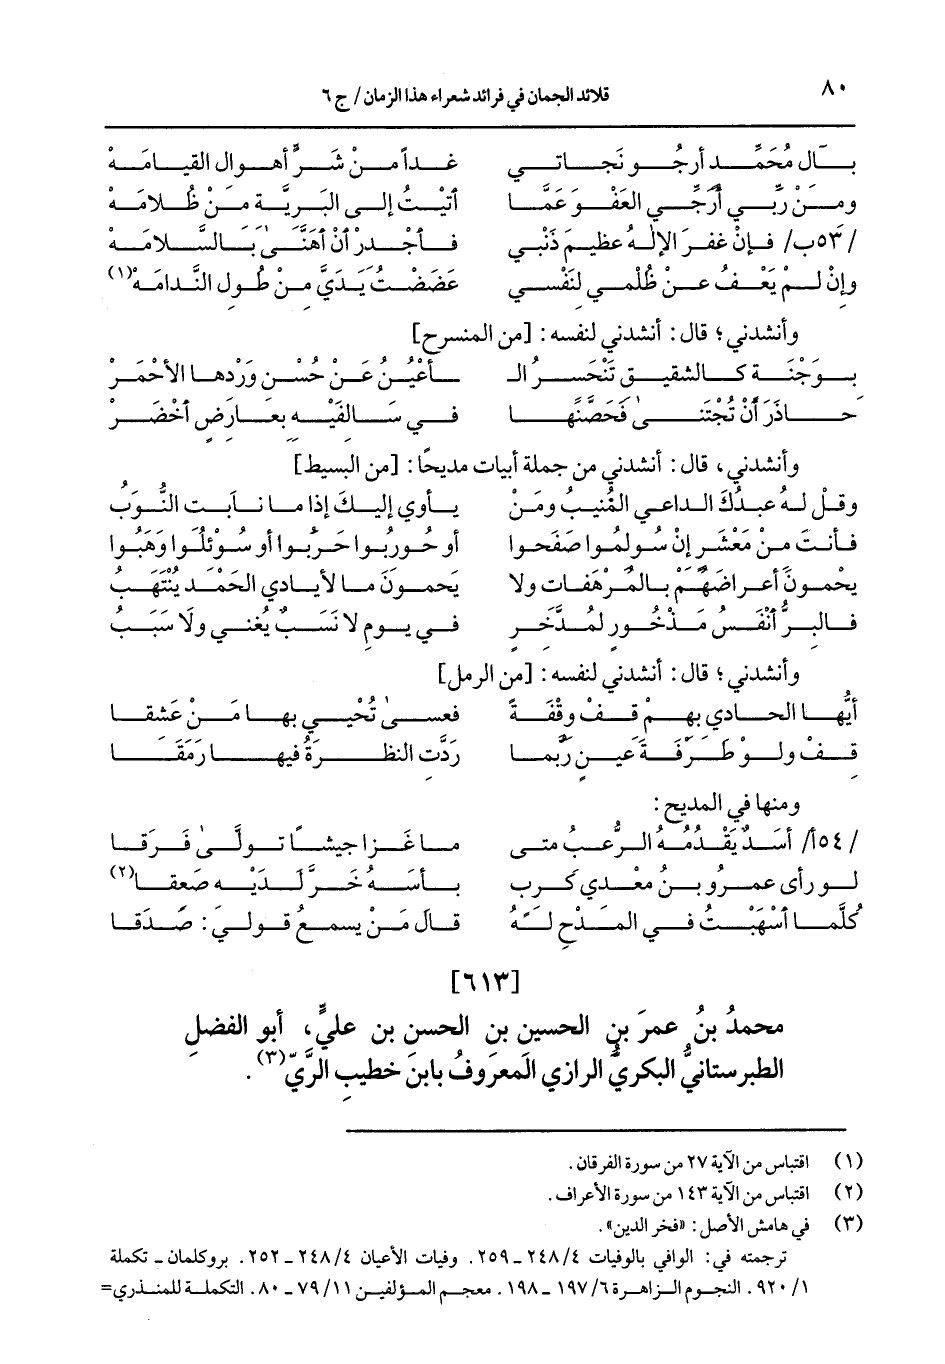 ٨٠ قلائد الجمان في فرائد شعراء هذا الزمان/ ج٦
بآل مُحَمَّد أرجُو نَجاتي غداً منْ شَرِّ أهوال القيامَهْ
ومنْ ربِّي أُرَجِّي العَفْوَ عَمَّا أتيْتُ إلى البَريَّة منْ ظُلامَهْ
/٥٣ب/ فإنْ غفرَ الإلهُ عظيمَ ذَنْبي فأجْدرْ أنْ أُهَنَّى بالسَّلامَهْ
وإنْ لمْ يَعْفُ عنْ ظُلْمي لنَفْسي عَضَضْتُ يَدَيَّ منْ طُول النَّدامَهْ(١)
وأنشدني؛ قال: أنشدني لنفسه: [من المنسرح]
بوَجْنَة كالشقيق تَنْحَسرُ الـ ـأعْيُن عَنْ حُسْن وَرْدها الأحْمَرْ
حاذَرَ أنْ تُجْتَنىٰ فَحَصَّنَها في سَالفَيْه بعَارض أخْضَرْ
وأنشدني، قال: أنشدني من جملة أبيات مديحًا: [من البسيط]
وقلْ لهُ عبدُكَ الداعي المُنيبُ ومَنْ يأوي إليكَ إذا ما نابَت النُّوَبُ
فأنتَ منْ مَعْشَر إنْ سُولمُوا صَفحوا أو حُوربُوا حَرَبُوا أو سُوئلُوا وَهَبُوا
يحْمونَ أعراضَهُمْ بالمُرْهَفات ولا يَحمونَ ما لأيادي الحَمْد يُنْتَهبُ
فالبرُّ أنْفَسُ مَذخُور لمُدَّخر في يوم لا نَسَبٌ يُغني ولَا سَبَبُ
وأنشدني؛ قال: أنشدني لنفسه: [من الرمل]
أيُّها الحادي بهمْ قفْ وقْفَةً فعسىٰ تُحْيي بها مَنْ عَشقا
قفْ ولو طَرْفَةَ عَين رُبَّما رَدَّت النظرَةُ فيها رَمَقَا
ومنها في المديح:
/٥٤أ/ أسَدٌ يَقْدُمُهُ الرُّعبُ متى ما غَزا جيشًا تولَّىٰ فَرَقا
لو رأى عمرو بنُ معْدي كرب بأسَهُ خَرَّ لَدَيْه صَعقا(٢)
كُلَّما أسْهَبْتُ في المَدْح لَهُ قالَ مَنْ يسمعُ قولي: صَدَقا
[٦١٣]
محمدُ بنُ عمرَ بن الحسين بن الحسن بن عليٍّ، أبو الفضل
الطبرستانيُّ البكريُّ الرازي المَعروفُ بابن خطيب الرَّيّ(٣).
(١) اقتباس من الآية ٢٧ من سورة الفرقان.
(٢) اقتباس من الآية ١٤٣ من سورة الأعراف.
(٣) في هامش الأصل: «فخر الدين».
ترجمته في: الوافي بالوفيات ٢٤٨/٤ ـ ٢٥٩. وفيات الأعيان ٢٤٨/٤ ـ ٢٥٢. بروكلمان ـ تكملة
٩٢٠/١. النجوم الزاهرة ١٩٧/٦ ـ ١٩٨. معجم المؤلفين ٧٩/١١ ـ ٨٠. التكملة للمنذري=